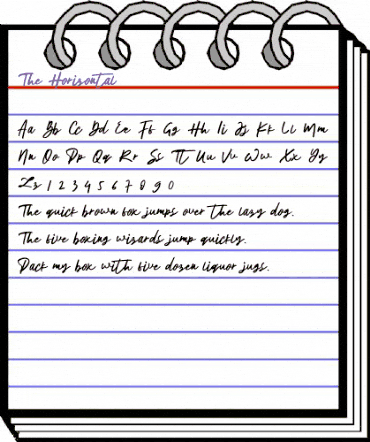 The Horisontal
Aa Bb Cc Dd Ee Ff Gg Hh Ii Jj Kk Ll Mm
Nn Oo Pp Qq Rr Ss Tt Uu Vv Ww Xx Yy
Zz 1 2 3 4 5 6 7 8 9 0
The quick brown fox jumps over the lazy dog.
The five boxing wizards jump quickly.
Pack my box with five dozen liquor jugs.